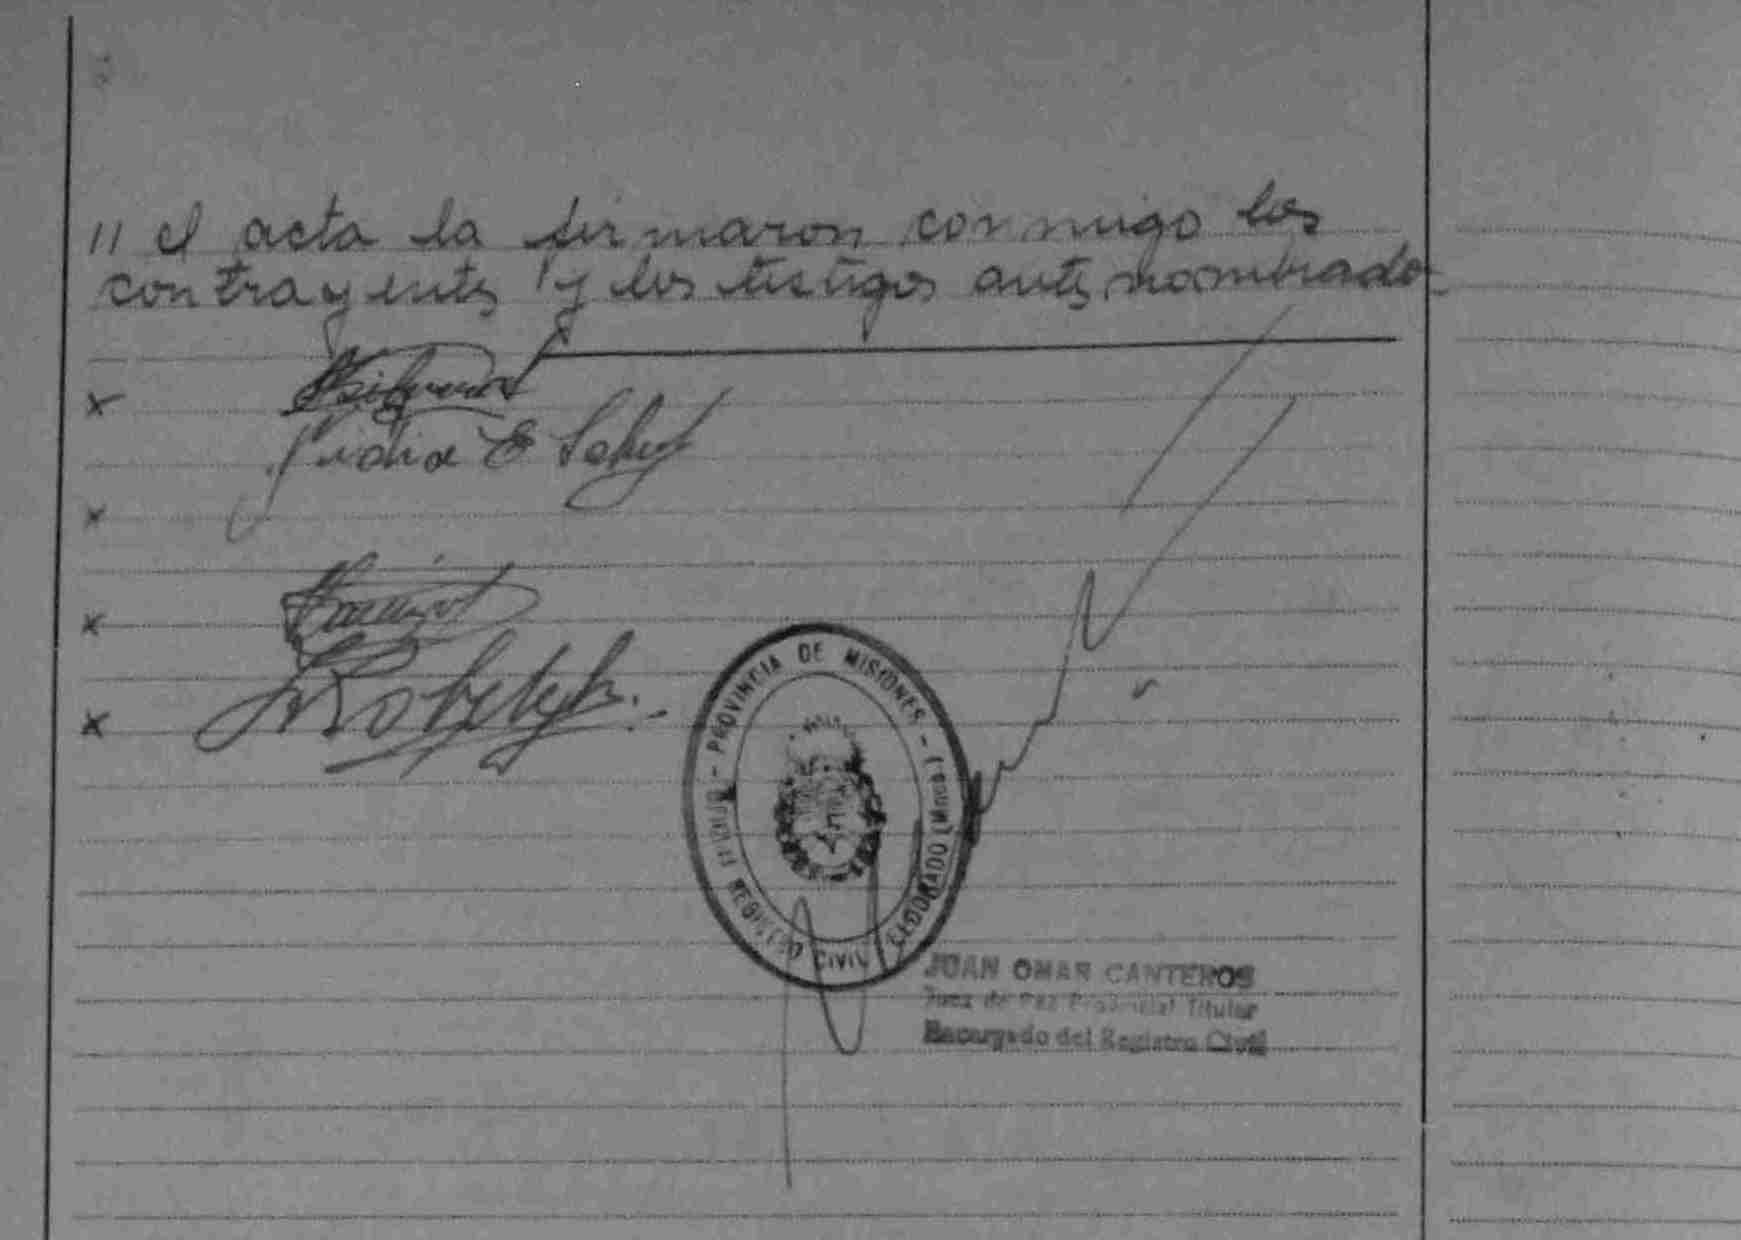 // el acta la firmaron conmigo los
contrayentes y los testigos antes nombrado
x
E
x
x
x
PROVINCIA DE MISIONES - ELDORADO (Mnes.)
REGISTRO CIVIL
JUAN OMAR CANTEROS
Juez de Paz Provincial Titular
Encargado del Registro Civil